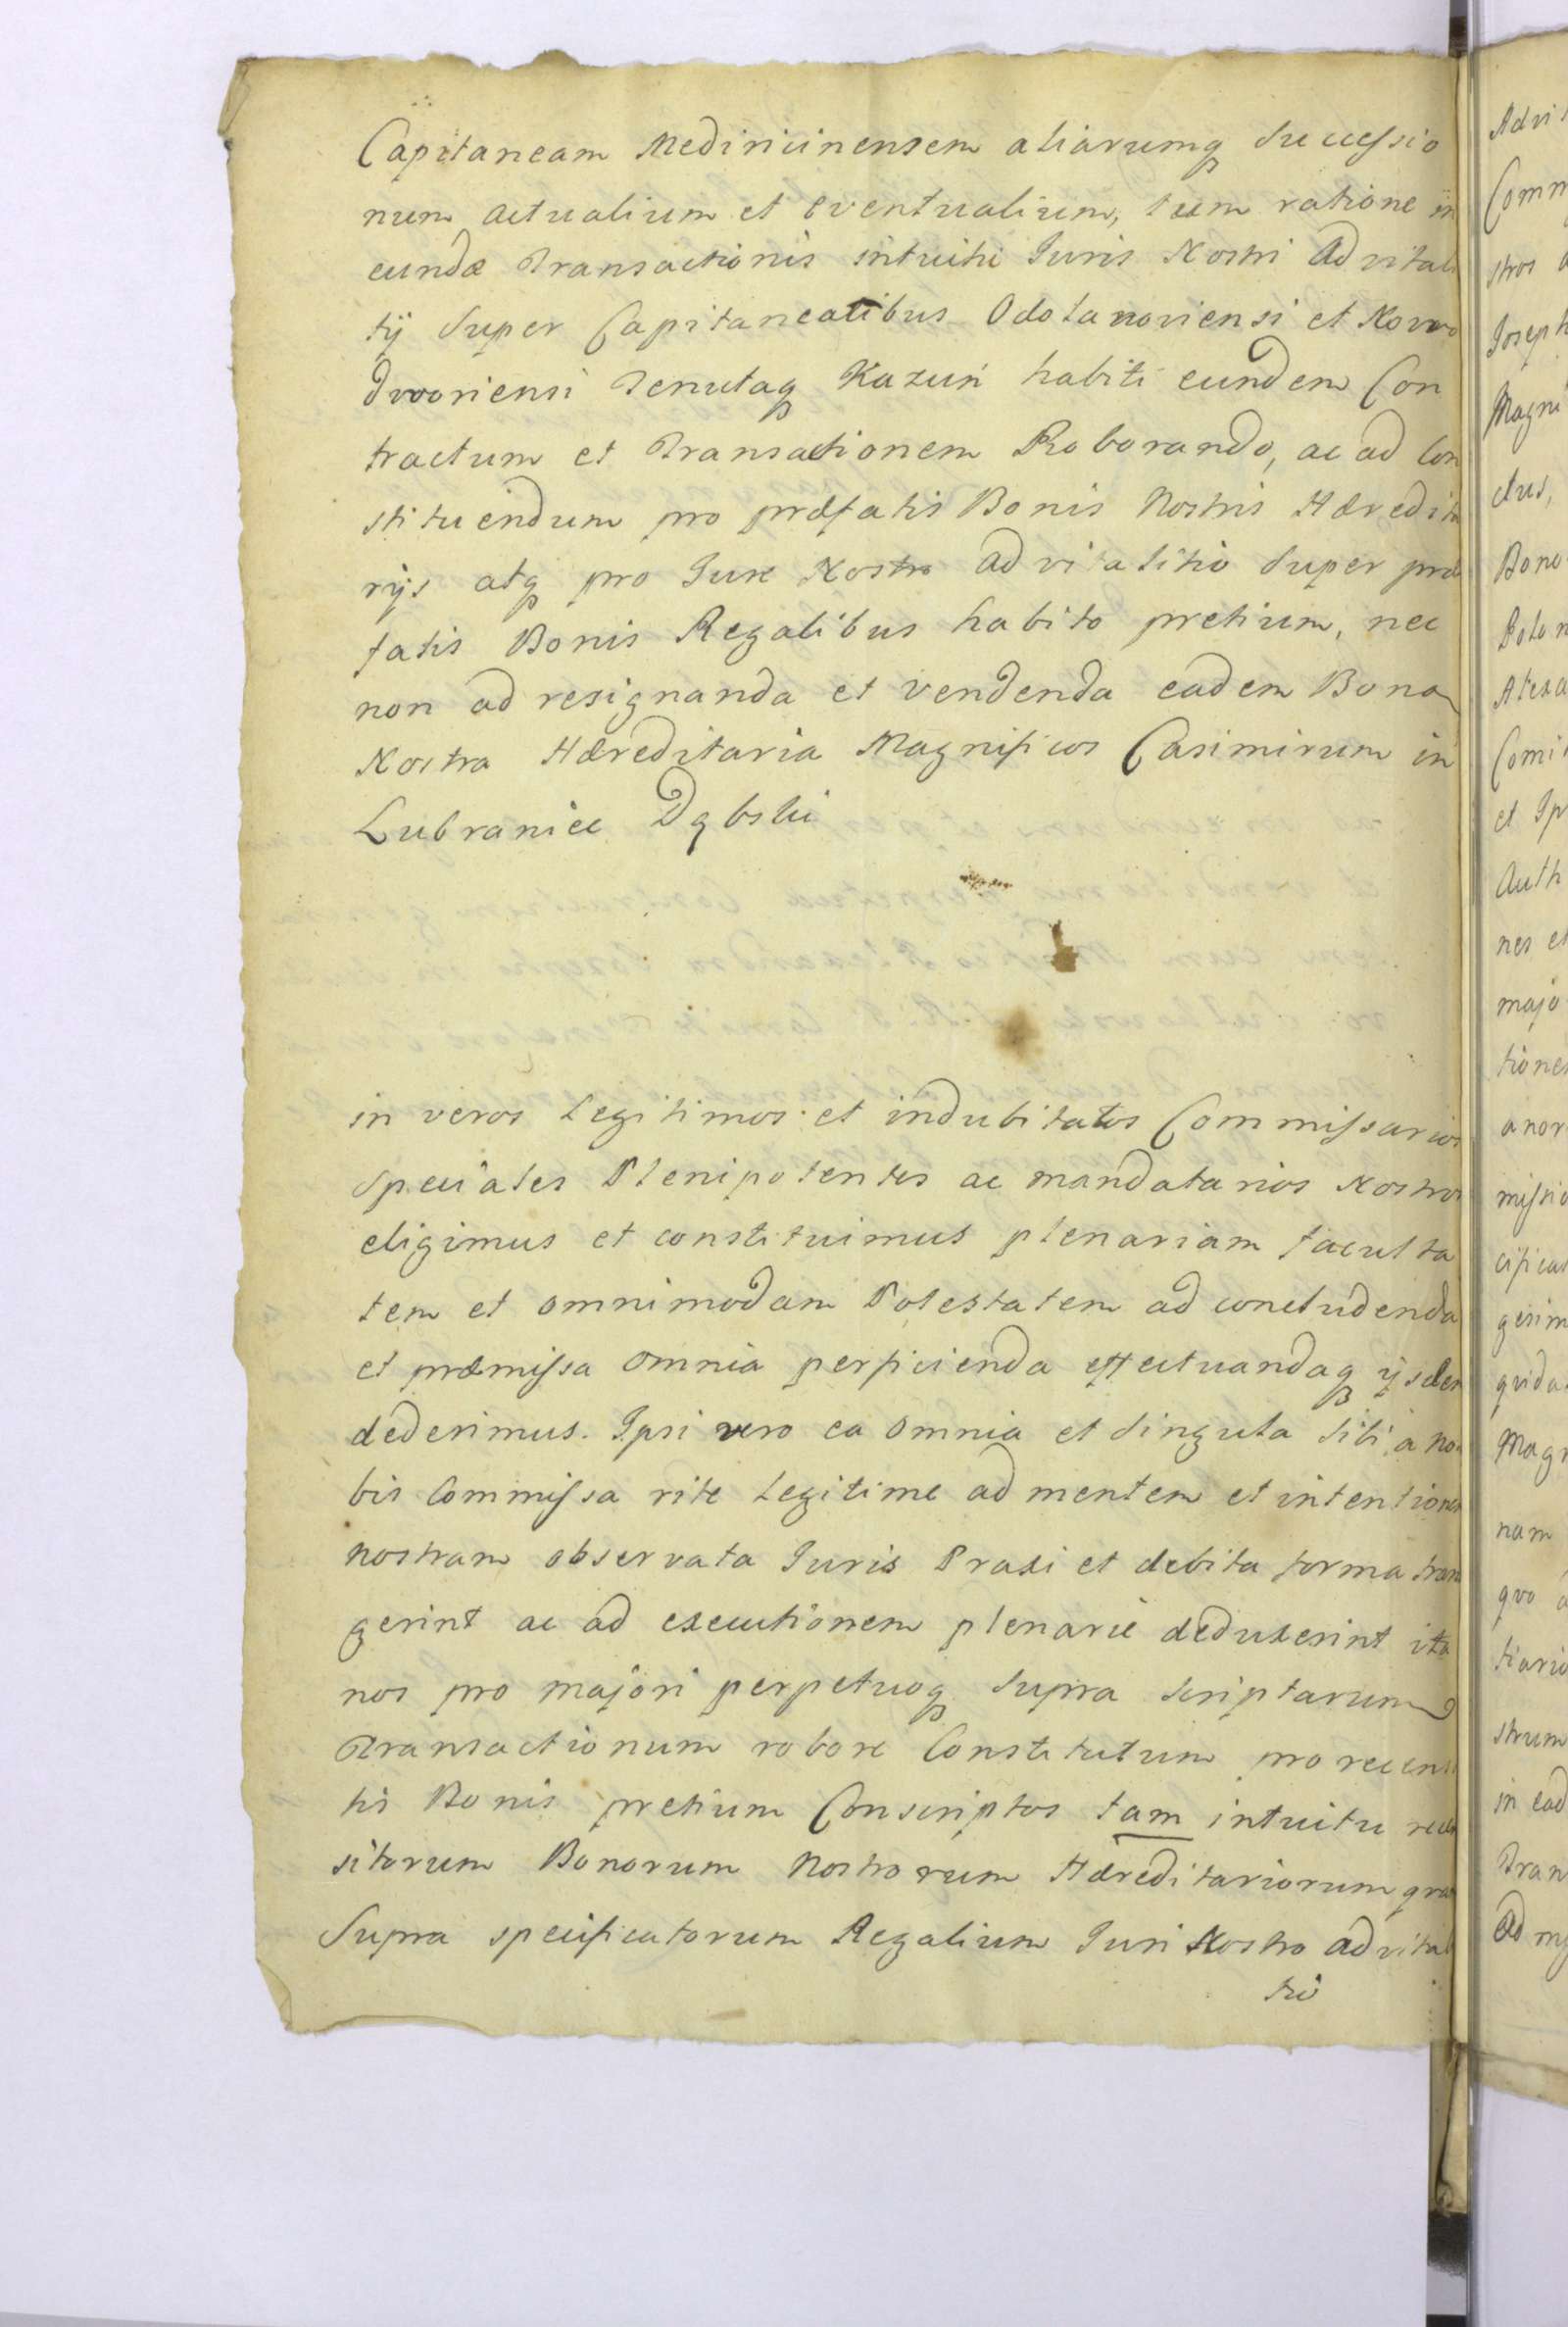 Capitaneam Mediricinensem aliarumq Successio
num actualium et eventualium, tum ratione in
eundæ Transactionis intuitu Juris Nostri Advitali
tij Super Capitaneatibus Odolanoviensi et Novo
dvoriensi Tenutaq Kazuń habiti eundem Con
tractum et Transactionem Roborando, ac ad Con
stituendum pro præfatis Bonis Nostris Hæredita
rijs atq pro Jure Nostro advitalitio Super præ
fatis Bonis Regalibus habito pretium, nec
non ad resignanda et vendenda eadem Bona
Nostra Hæreditaria Magnificos Casimirum in
Lubraniec Dąbski
in veros Legitimos et indubitatos Commissarios
Speciales Plenipotentes ac mandatarios Nostros
eligimus et constituimus plenariam faculta
tem et omnimodam Potestatem ad concludenda
et præmissa omnia perficienda effectuandaq ijsdem
dederimus. Ipsi vero ea omnia et Singula Sibi a no
bis Commissa rite Legitime ad mentem et intentionem
nostram observata Juris Praxi et debita forma trans
gerint ac ad executionem plenarie deduxerint ita
nos pro majori perpetuoq Supra Scriptarum
Transactionum robore Constitutum pro recensi
tis Bonis pretium Conscriptos tam intuitu recen
sitorum Bonorum Nostrorum Hæreditariorum
Supra specificatorum Regalium Juri Nostro advitali
tio
Advit
Comm
stros
Joseph
Magni
ctus,
Bono
Polon
Alexa
Comit
et Ip
Auth
nes et
majo
tiones
a nor
missio
cificat
gerim
quida
Magn
nam
quo
tiario
strum
in ead
Tran
Ad